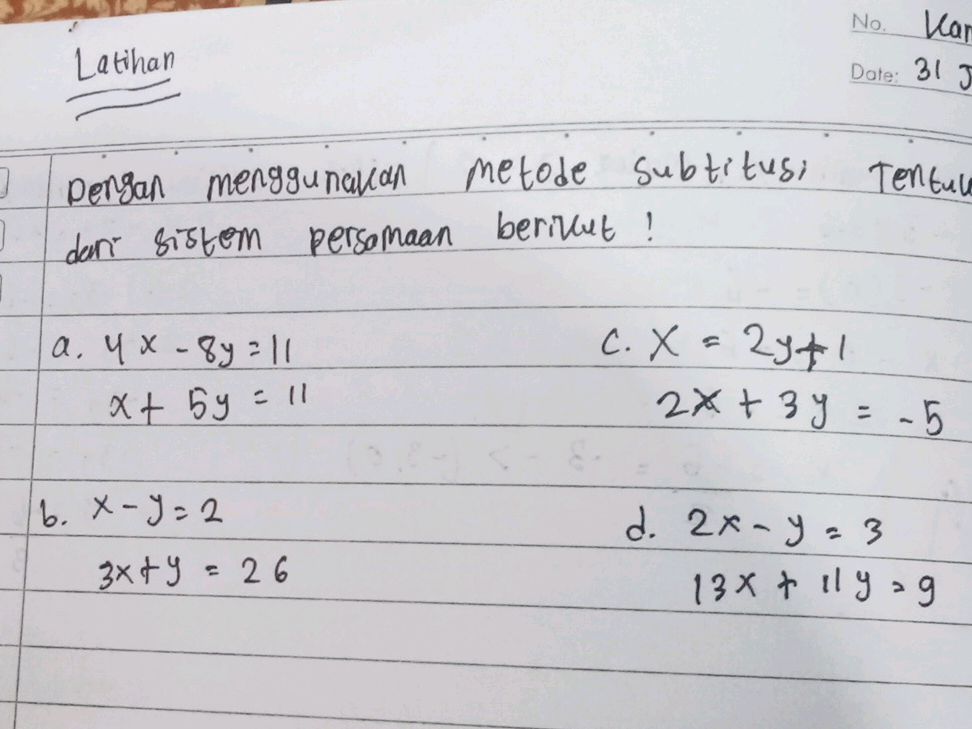 No. Kam
Latihan
Date: 31 J
Dengan menggunakan metode subtitusi Tentuk
dari sistem persamaan berikut !
a. 4x - 8y = 11
x + 5y = 11
c. x = 2y + 1
2x + 3y = -5
b. x - y = 2
3x + y = 26
d. 2x - y = 3
13x + 11y = 9